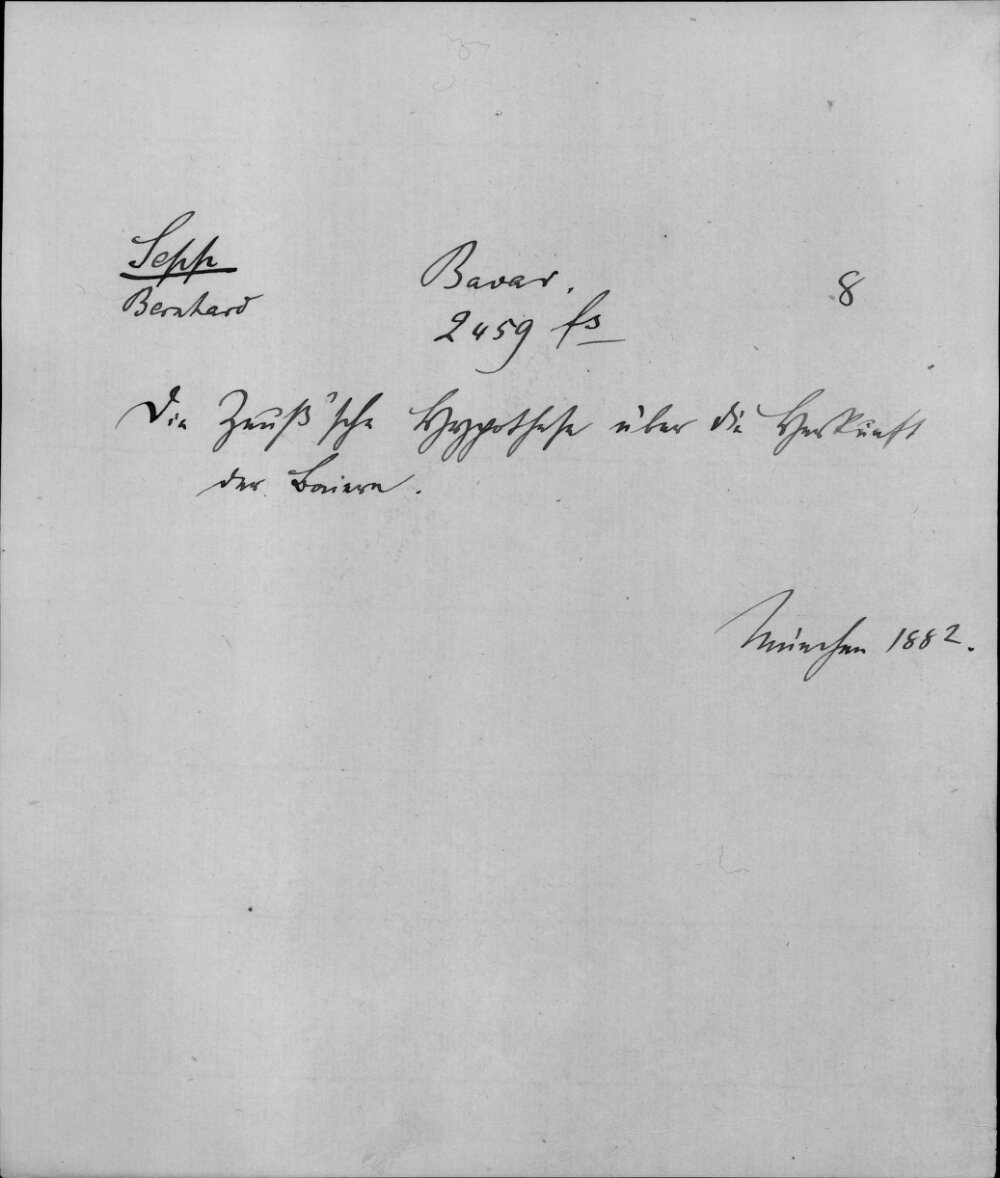 Sepp
Bernhard
Bavar.
2459 fs
8
Die Zeuß'sche Hypothese über die Herkunft
der Baiern.
München 1882.